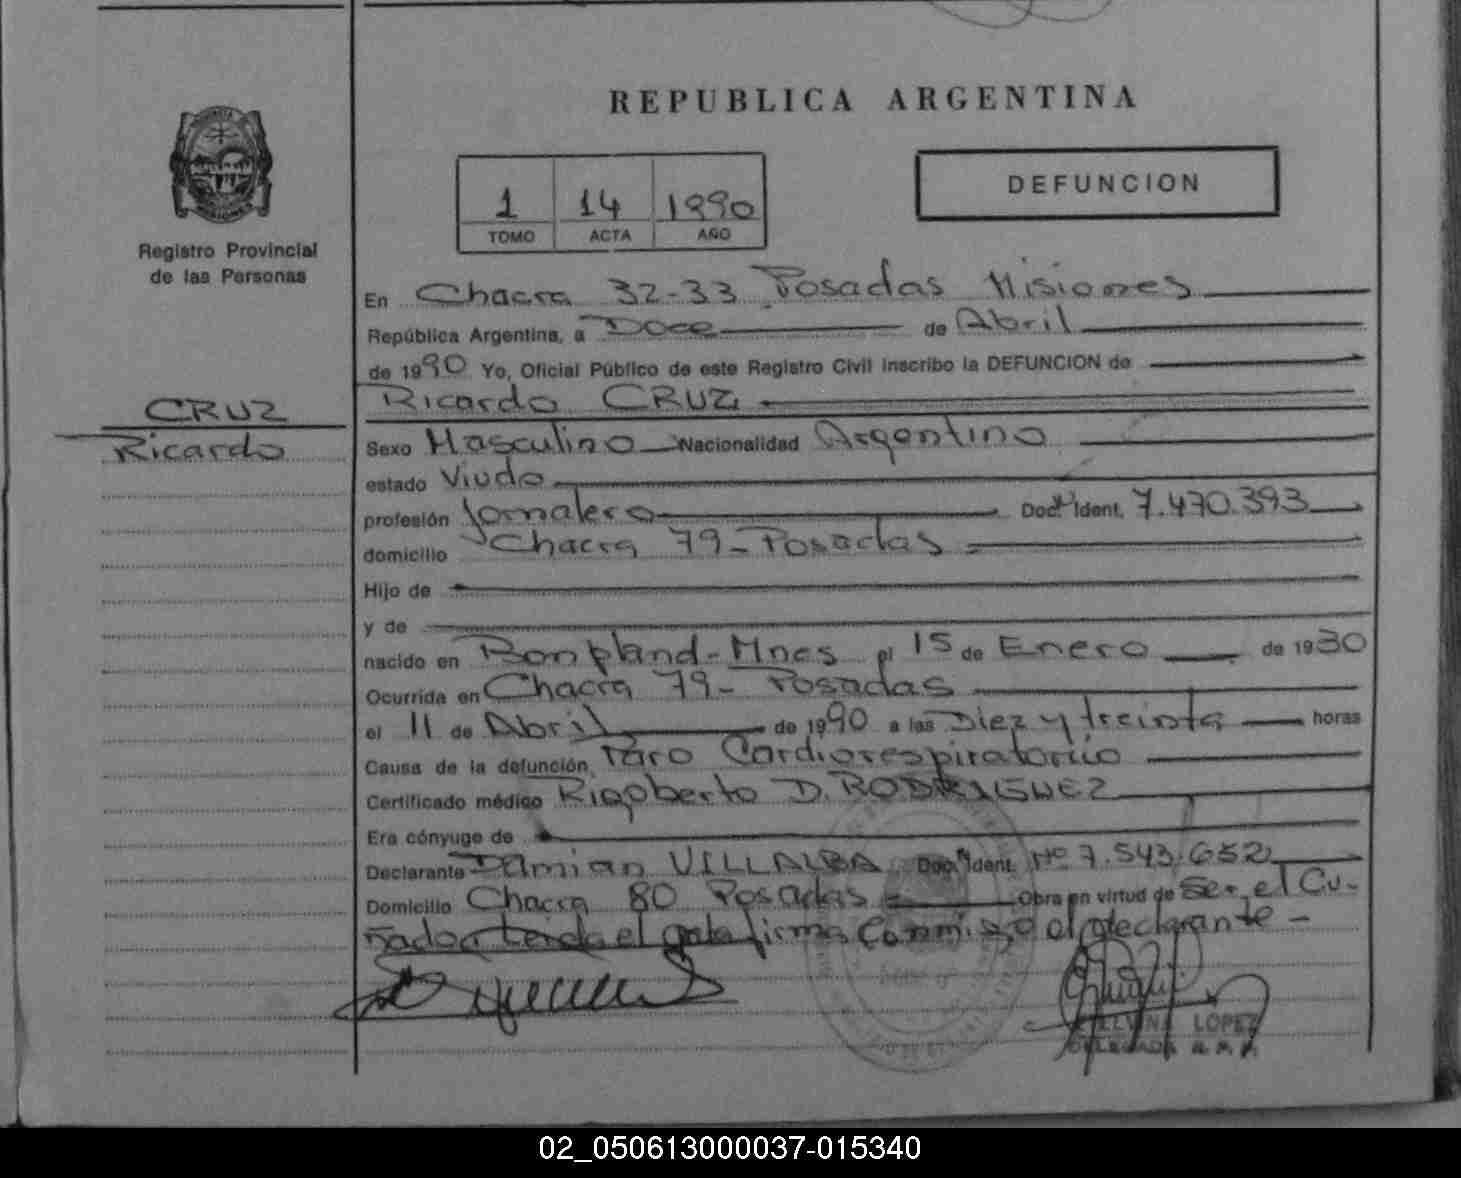 REPUBLICA ARGENTINA
DEFUNCION
1 14 1990
TOMO ACTA AÑO
PROVINCIA
MISIONES
Registro Provincial
de las Personas
CRUZ
Ricardo
En Chacra 32-33 Posadas Misiones
República Argentina, a Doce de Abril
de 1990 Yo, Oficial Público de este Registro Civil inscribo la DEFUNCION de
Ricardo CRUZ
Sexo Masculino Nacionalidad Argentino
estado Viudo
profesión Jornalero Doc. Ident. 7.470.393
domicilio Chacra 79- Posadas
Hijo de
y de
nacido en Bonpland-Mnes el 15 de Enero de 1930
Ocurrida en Chacra 79- Posadas
el 11 de Abril de 1990 a las Diez y treinta horas
Causa de la defunción Paro Cardiorespiratoriio
Certificado médico Rigoberto D. RODRIGUEZ
Era cónyuge de
Declarante Damian VILLALBA Doc. Ident. Nº 7.543.652
Domicilio Chacra 80 Posadas Obra en virtud de Ser el Cu-
ñado leida el acta firma Conmigo el declarante-
ELVINA LOPEZ
DELEGADA R. P. P.
02_050613000037-015340